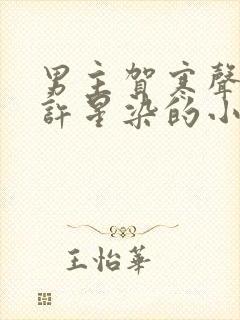 男主賀寒聲
許星染的小
王怡華